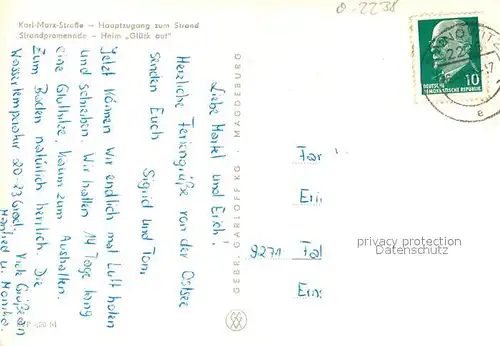 Karl-Marx-Straße – Hauptzugang zum Strand
Strandpromenade – Heim „Glück auf"
0-2238
DEUTSCHE
DEMOKRATISCHE REPUBLIK
10
Liebe Martel und Erich!
Herzliche Feriengrüße von der Ostsee
senden Euch Sigrid und Tom.
Jetzt können wir endlich mal Luft holen
und schreiben. Wir hatten 14 Tage lang
eine Gluthitze, kaum zum Aushalten.
Zum Baden natürlich herrlich. Die
Wassertemperatur 20-23 Grad. Viele Grüße an
Manfred u. Monika.
GEBR. GARLOFF KG · MAGDEBURG
Far
Eri
9271 Fal
Erns
privacy protection
Datenschutz